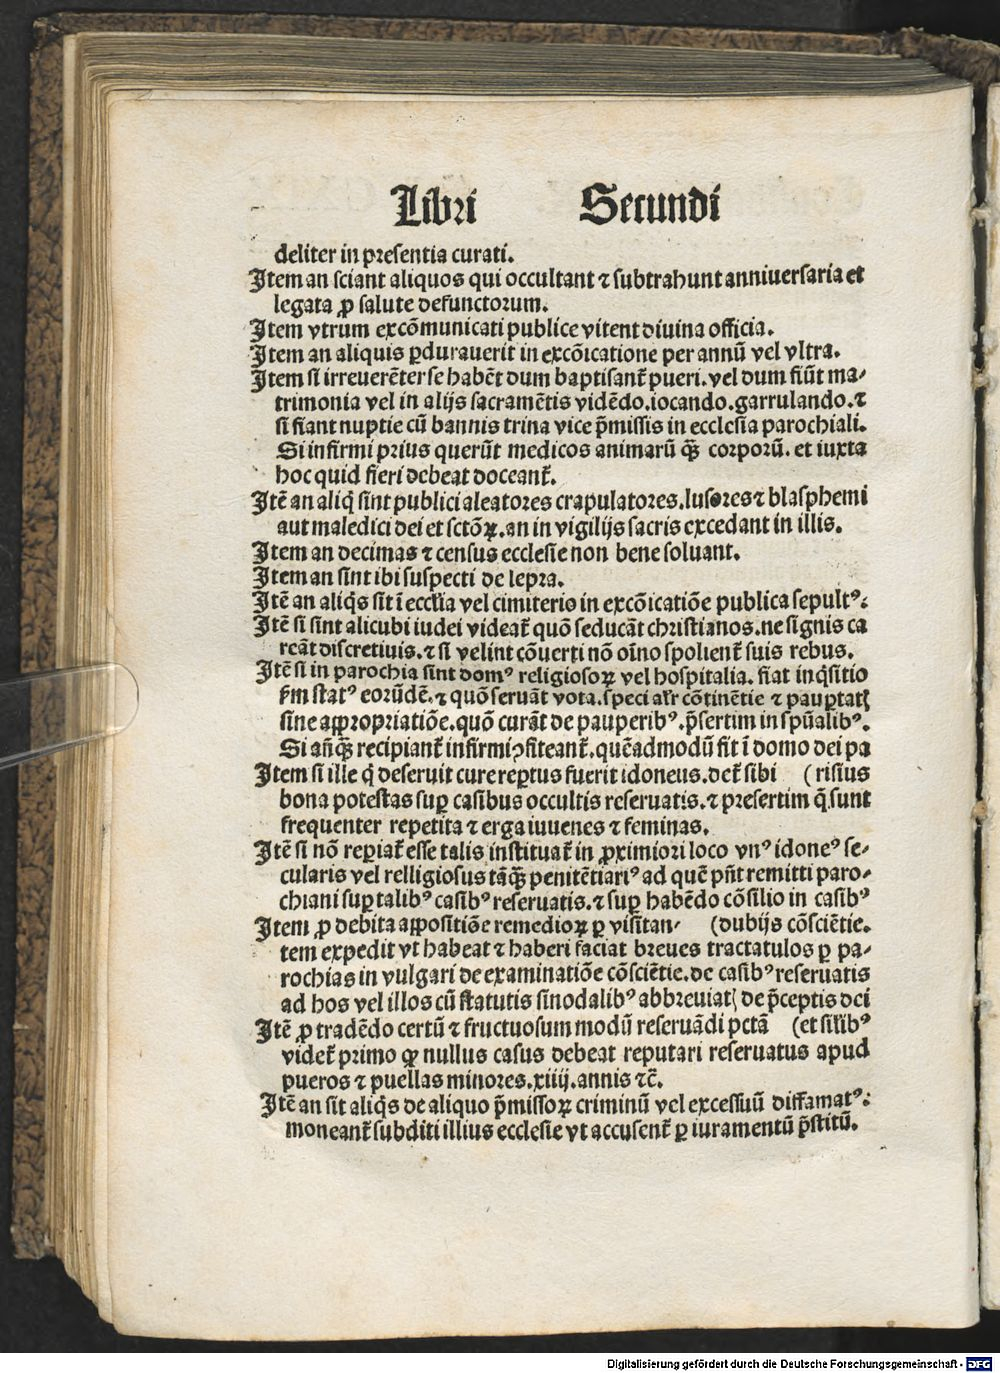 Libri Secundi
deliter in presentia curati.
Item an sciant aliquos qui occultant ⁊ subtrahunt anniuersaria et
legata ꝓ salute defunctorum.
Item vtrum excōmunicati publice vitent diuina officia.
Item an aliquis ꝑdurauerit in excōicatione per annū vel vltra.
Item si irreuerēter se habēt dum baptisant᷑ pueri. vel dum fiūt ma-
trimonia vel in alijs sacramētis vidēdo. iocando. garrulando. ⁊
si fiant nuptie cū bannis trina vice p̄missis in ecclesia parochiali.
Si infirmi prius querūt medicos animarū qȝ̄ corporū. et iuxta
hoc quid fieri debeat doceant᷑.
Itē an aliqͥ sint publici aleatores crapulatores. lusores ⁊ blasphemi
aut maledici dei et sctōꝝ. an in vigilijs sacris excedant in illis.
Item an decimas ⁊ census ecclesie non bene soluant.
Item an sint ibi suspecti de lepra.
Itē an aliqͥs sit ī eccl̄ia vel cimiterio in excōicatiōe publica sepultꝰ:
Itē si sint alicubi iudei videat᷑ quō seducāt christianos. ne signis ca
reāt discretiuis. ⁊ si velint cōuerti nō oīno spolient᷑ suis rebus.
Itē si in parochia sint domꝰ religiosoꝝ vel hospitalia. fiat inqͥsitio
ẜm statꝰ eorūdē. ⁊ quō seruāt vota. speciał̓r cōtinētie ⁊ pauꝑtatꝭ
sine aꝓpriatiōe. quō curāt de pauperibꝰ. p̄sertim in spūalibꝰ.
Si an̄qȝ̄ recipiant᷑ infirmi ꝯfiteant᷑. quēadmodū fit ī domo dei pa
Item si ille qͥ deseruit cure reꝑtus fuerit idoneus. det᷑ sibi (risius
bona potestas suꝑ casibus occultis reseruatis. ⁊ presertim q̄ sunt
frequenter repetita ⁊ erga iuuenes ⁊ feminas.
Itē si nō reꝑiat᷑ esse talis instituat᷑ in ꝓximiori loco vnꝰ idoneꝰ se-
cularis vel relligiosus tāqȝ̄ penitētiariꝰ ad quē pn̄t remitti paro-
chiani suꝑ talibꝰ casibꝰ reseruatis. ⁊ suꝑ habēdo cōsilio in casibꝰ
Item ꝓ debita appositiōe remedioꝝ ꝑ visitan- (dubijs cōsciētie.
tem expedit vt habeat ⁊ haberi faciat breues tractatulos ꝑ pa-
rochias in vulgari de examinatiōe cōsciētie. de casibꝰ reseruatis
ad hos vel illos cū statutis sinodalibꝰ abbreuiatꝭ de p̄ceptis dei
Itē ꝓ tradēdo certū ⁊ fructuosum modū reseruādi pctā (et sił̓ibꝰ
videt᷑ primo ꝙ nullus casus debeat reputari reseruatus apud
pueros ⁊ puellas minores. xiiij. annis ⁊c̄.
Itē an sit aliqͥs de aliquo p̄missoꝝ criminū vel excessuū diffamatꝰ:
moneant᷑ subditi illius ecclesie vt accusent᷑ ꝑ iuramentū p̄stitū.
Digitalisierung gefördert durch die Deutsche Forschungsgemeinschaft - DFG